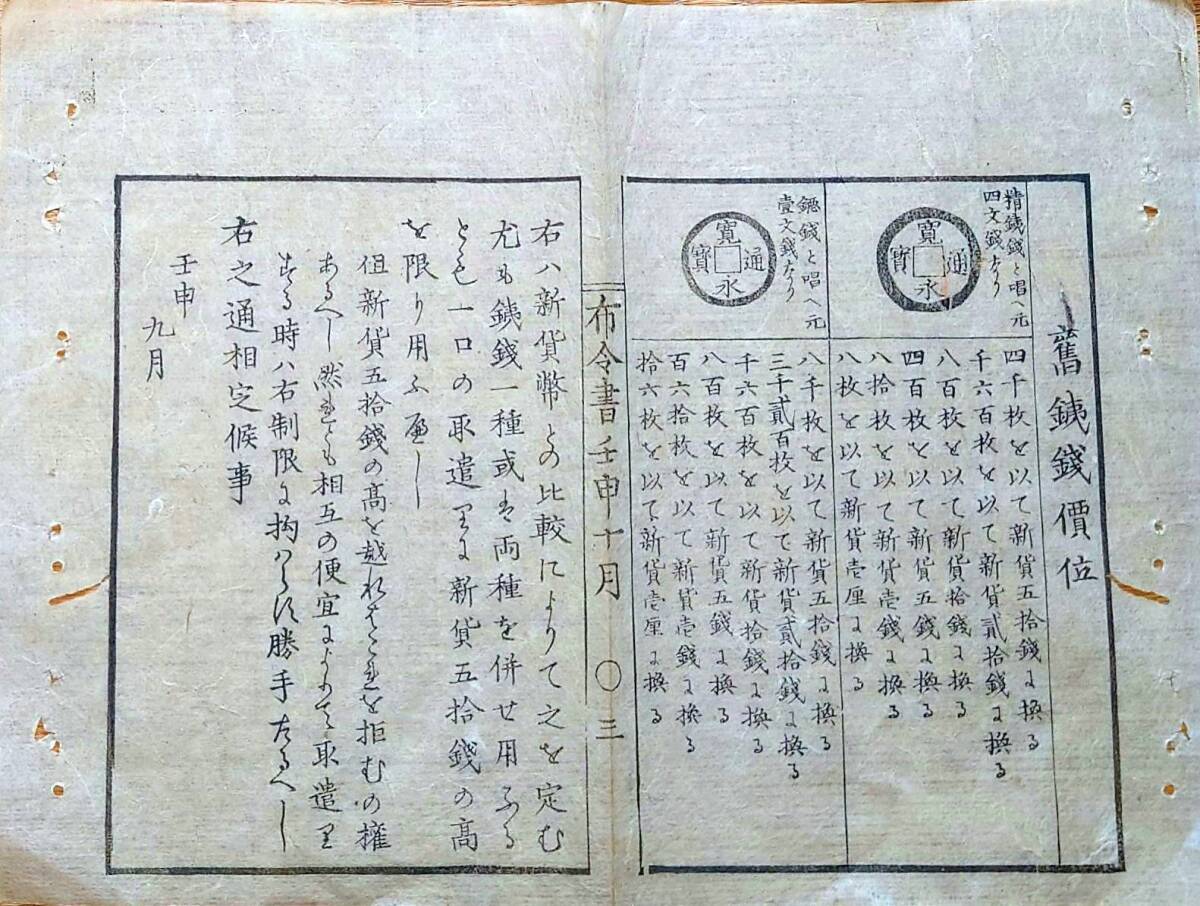 舊銕錢價位
精銕錢と唱へ元
四文錢なり
寛永通寶
四千枚を以て新貨五拾錢に換る
千六百枚を以て新貨貳拾錢に換る
八百枚を以て新貨拾錢に換る
四百枚を以て新貨五錢に換る
八拾枚を以て新貨壱錢に換る
八枚を以て新貨壱厘に換る
鐚錢と唱へ元
壹文錢なり
寛永通寶
八千枚を以て新貨五拾錢に換る
三千貳百枚を以て新貨貳拾錢に換る
千六百枚を以て新貨拾錢に換る
八百枚を以て新貨五錢に換る
百六拾枚を以て新貨壱錢に換る
拾六枚を以て新貨壱厘に換る
布令書壬申十月 〇 三
右ハ新貨幣との比較によりて之を定む
尤も銕錢一種或は両種を併せ用ふる
とも一口の取遣りに新貨五拾錢の高
を限り用ふへし
但新貨五拾錢の高を越れはこれを拒むの權
あるへし然れとも相互の便宜によりて取遣り
する時ハ右制限に拘ハらす勝手たるへし
右之通相定候事
壬申
九月